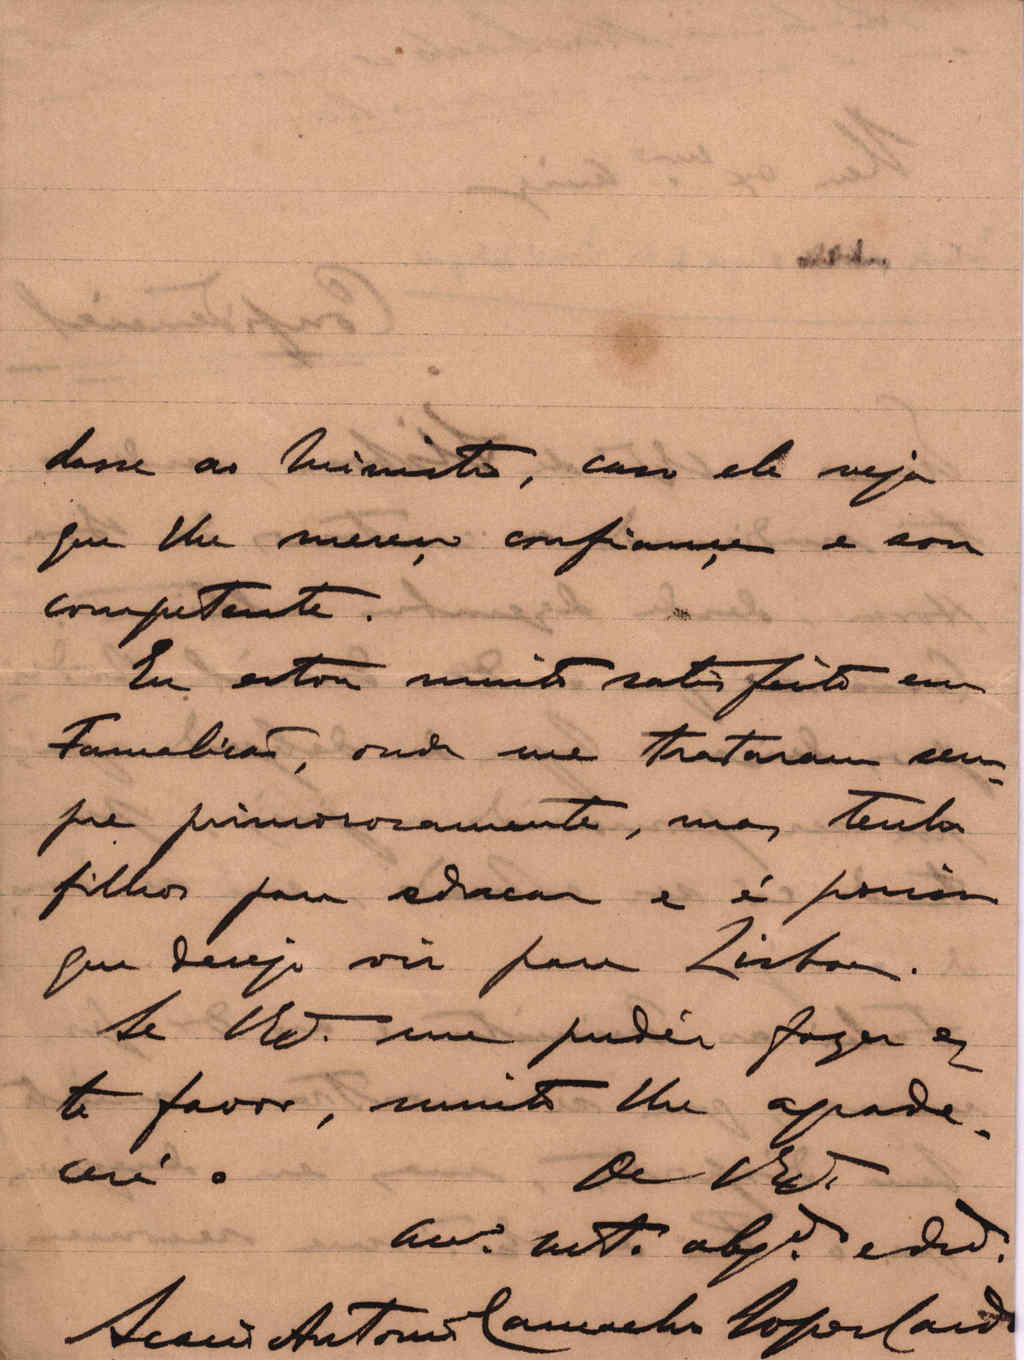 dasse ao Ministro, caso ele veja
que lhe mereço confiança e sou
competente.
Eu estou muito satisfeito em
Famalicão, onde me trataram sem-
pre primorosamente, mas tenho
filhos para educar e é por isso
que desejo vir para Lisboa.
Se V. Exª. me pudér fazer es
te favor, muito lhe agrade-
cerei.
De V. Exª.
am.º mt.º obgd.º e
António Camacho Lopes Cardoso